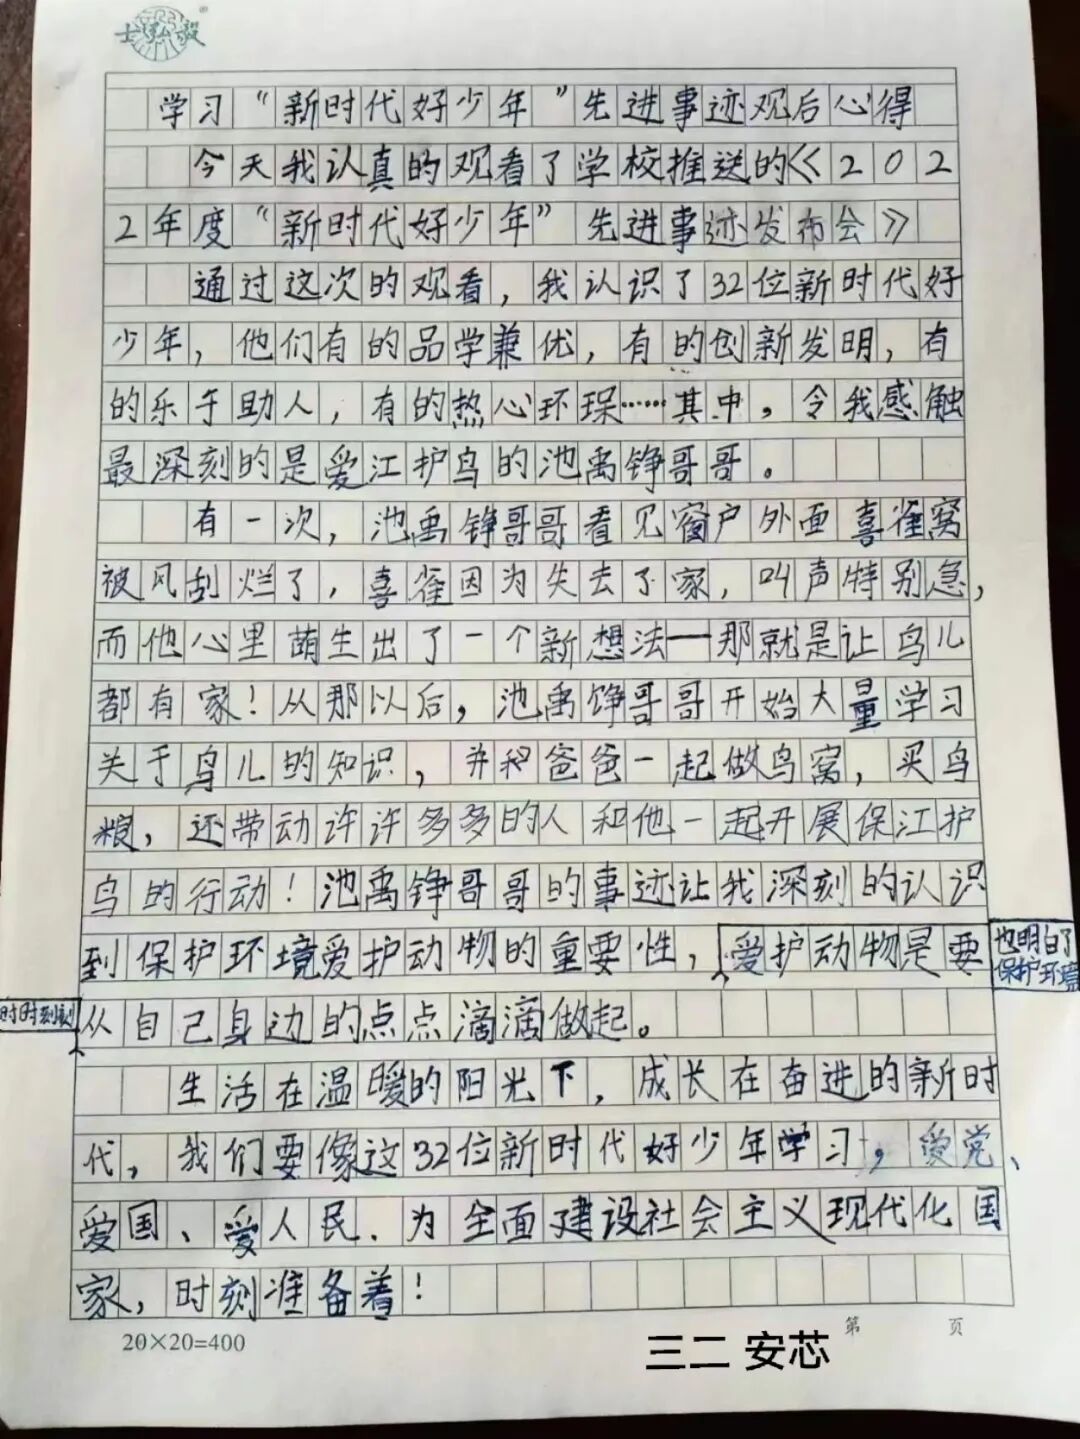 士弘毅
学习“新时代好少年”先进事迹观后心得
今天我认真的观看了学校推送的《202
2年度“新时代好少年”先进事迹发布会》
通过这次的观看，我认识了32位新时代好
少年，他们有的品学兼优，有的创新发明，有
的乐于助人，有的热心环保……其中，令我感触
最深刻的是爱江护鸟的池禹铮哥哥。
有一次，池禹铮哥哥看见窗户外面喜雀窝
被风刮烂了，喜雀因为失去了家，叫声特别急，
而他心里萌生出了一个新想法——那就是让鸟儿
都有家！从那以后，池禹铮哥哥开始大量学习
关于鸟儿的知识，并和爸爸一起做鸟窝，买鸟
粮，还带动许许多多的人和他一起开展保江护
鸟的行动！池禹铮哥哥的事迹让我深刻的认识
到保护环境爱护动物的重要性，爱护动物是要
也明白了
保护环境
时时刻刻
从自己身边的点点滴滴做起。
生活在温暖的阳光下，成长在奋进的新时
代，我们要像这32位新时代好少年学习，爱党、
爱国、爱人民．为全面建设社会主义现代化国
家，时刻准备着！
20×20=400
第 页
三二 安芯